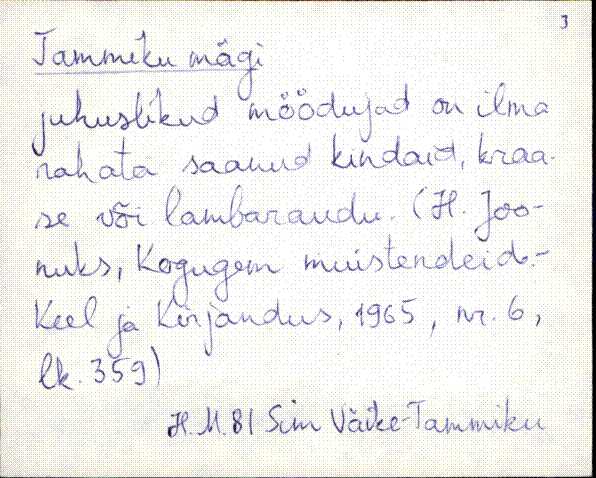 3
Tammiku mägi
juhuslikud möödujad on ilma
rahata saanud kindaid, kraa-
se või lambaraudu. (H. Joo-
nuks, Kogugem muistendeid.-
Keel ja Kirjandus, 1965, nr. 6,
lk. 359)
H. M. 81 Sim Väike-Tammiku